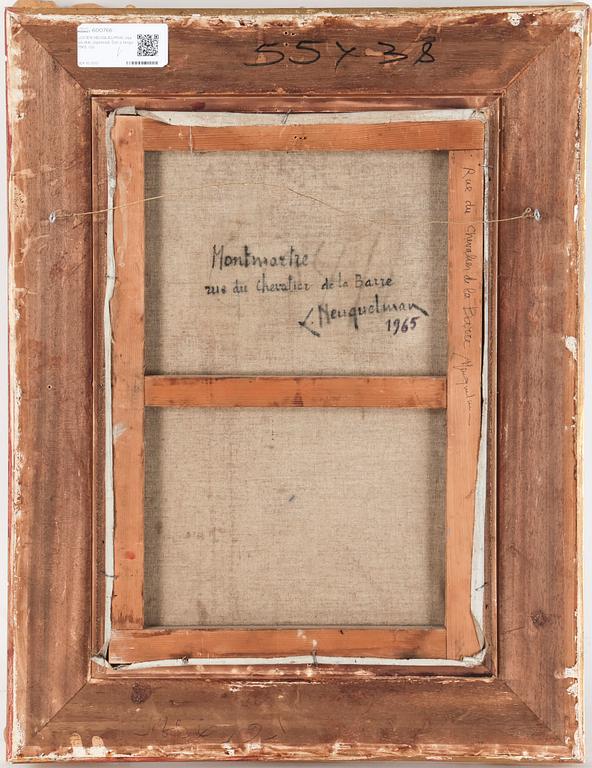 600766
55 x 38
Montmartre
rue du Chevalier de la Barre
L Neuquelman
1965
Rue du Chevalier de la Barre Neuquelman